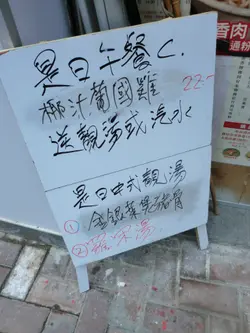 是日午餐C.
椰汁葡國雞
22-
送靚湯或汽水
是日中式靚湯
① 金銀菜煲豬骨
② 羅宋湯
香肉
通粉